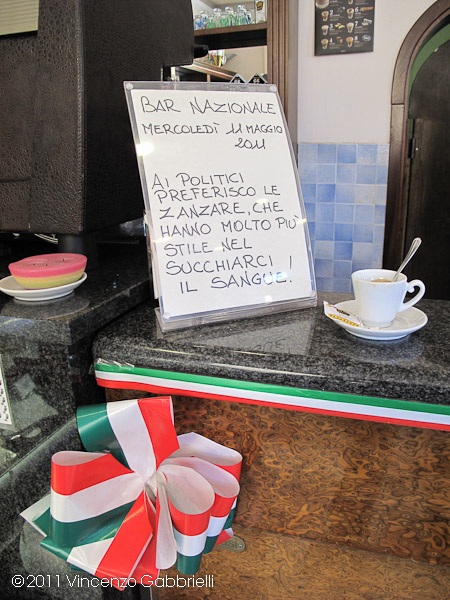 BAR NAZIONALE
MERCOLEDÌ 11 MAGGIO
2011
AI POLITICI
PREFERISCO LE
ZANZARE, CHE
HANNO MOLTO PIÙ
STILE NEL
SUCCHIARCI
IL SANGUE!
©2011 Vincenzo Gabbrielli